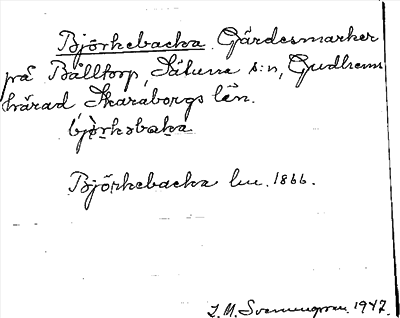 Björkebacka Gärdesmarker
på Bälltorp, Sätuna s:n, Gudhems
härad Skaraborgs län.
bjǫ̀rkəbaka
Björkebacka lm. 1866.
I. M. Svennungsson. 1947.